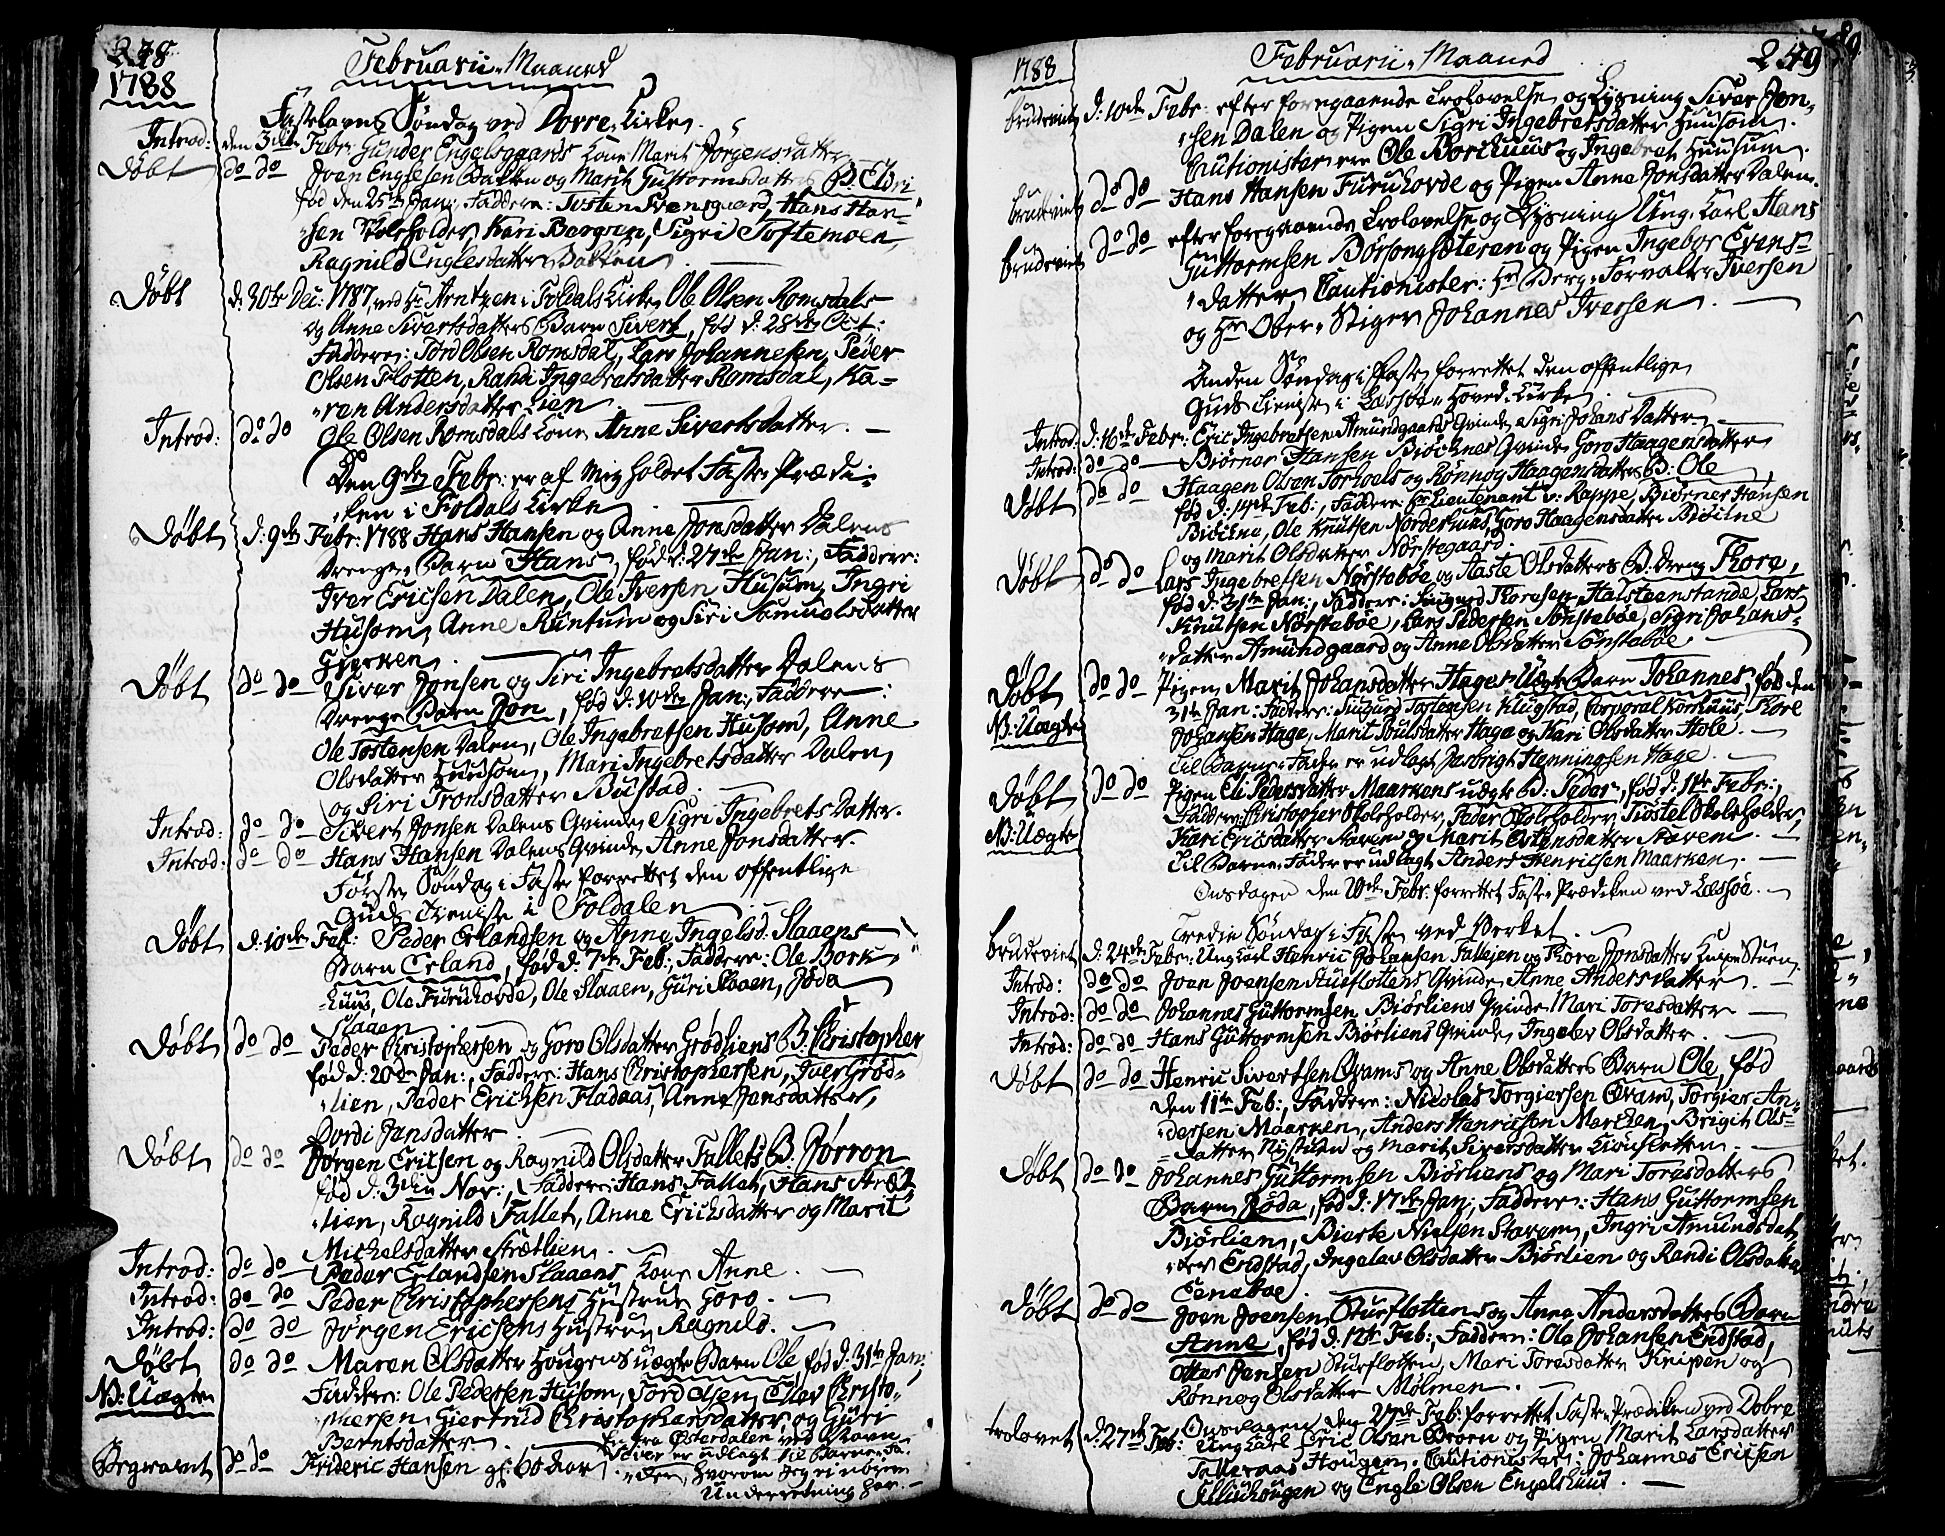 248
1788
Februarii Maaned
Fastelavns Søndag ved Dovre Kirke.
Introd: den 3die Febr: Gunder Engelsgaards Kone Marit Jørgensdatter
Døbt do do Joen Englesen Bakken og Marit Guttormsdatters B: Eldri
fød den 25de Jan: Faddere: Tosten Svensgaard, Hans Han-
sen Skoleholder, Kari Bergsen, Sigri Toftemoen,
Ragnild Englesdatter Bakken.
Døbt d: 30te Dec: 1787, ved Hr Arntzen i Foldals Kirke, Ole Olsen Romsdals
og Anne Sivertsdatters Barn Sivert, fød d: 28de Oct:
Faddere: Tord Olsen Romsdal, Lars Johannesen, Peder
Olsen Flotten, Randi Ingebretsdatter Romsdal, Ka-
ren Andersdatter Lien.
Introd: do do Ole Olsen Romsdals Kone Anne Sivertsdatter.
Den 9de Febr: er af mig holdet Faste-Prædi-
ken i Foldals Kirke
Døbt d: 9de Febr: 1788 Hans Hansen og Anne Jonsdatter Dalens
Drenge Barn Hans, fød d: 27de Jan:, Faddere:
Iver Ericsen Dalen, Ole Iversen Husum, Ingri
Husom, Anne Runtum og Siri Samuelsdatter
Gjerken.
Døbt do do Sivar Jonsen og Siri Ingebretsdatter Dalens
Drenge Barn Jon, fød d: 10de Jan:, Faddere:
Ole Tostensen Dalen, Ole Ingebretsen Husom, Anne
Olsdatter Huusom, Mari Ingebretsdatter Dalen,
og Siri Tronsdatter Bustad.
Introd: do do Sivert Jonsen Dalens Qvinde Sigri Ingebrets Datter.
Introd: do do Hans Hansen Dalens Qvinde Anne Jonsdatter.
Første Søndag i Faste forrettet den offentlige
Guds Tieniste i Foldalen
Døbt d: 10de Feb: Peder Erlandsen og Anne Ingelsd: Slaaens
Barn Erland, fød d: 7de Feb:, Faddere: Ole Bork-
huus, Ole Furuhovde, Ole Slaaen, Guri Slaaen, Jøda
Slaaen.
Døbt do do Peder Christophersen og Goro Olsdatter Grødliens B: Christopher
fød d: 20de Jan:, Faddere: Hans Christophersen, Iver Grød-
lien, Peder Erichsen Fladaas, Anne Jansdatter,
Jansdatter.
Døbt do do Jørgen Ericsen og Ragnild Olsdatter Fallets B: Jørron
fød d: 3die Nov:, Faddere: Hans Fallet, Hans Stræt-
lien, Ragnild Fallet, Anne Erichsdatter og Marit
Michelsdatter Strætlien.
Introd: do do Peder Erlandsen Slaaens Kone Anne.
Introd: do do Peder Christophersens Hustrue Goro.
Introd: do do Jørgen Ericsens Hustrue Ragnild.
Døbt do do Maren Olsdatter Hougens uægte Barn Ole, fød d: 31te Jan:
NB: Uægte Faddere: Ole Pedersen Husom, Tord Olsen, Elev Christo-
phersen, Giertrud Christophersdatter og Guri
Berntsdatter.
Begravet do do Frideric Hansen gl: 60 Aar
fra Østerdalen ved Navn
er udlagt til Barne Fa-
der, hvorom jeg ei nøiere
Underretning har.
1788
Februarii Maaned
249
brudeviet d: 10de Febr: efter foregaaende Trolovelse og Lysning Sivar Jon-
sen Dalen og Pigen Sigri Ingebretsdatter Huusom.
Cautionister ere Ole Borkhuus og Ingebret Huusum.
brudeviet do do Hans Hansen Furuhovde og Pigen Anne Jonsdatter Dalen.
brudeviet do do efter foregaaende Trolovelse og Lysning Ung Karl Hans
Guttormsen Børsongsæteren og Pigen Ingebor Evens-
datter, Cautionister: Hr Berg-Forvalter Iversen
og Hr Ober-Stiger Johannes Iversen.
Anden Søndag i Faste forrettet den offentlige
Guds Tieniste i Lessøe Hoved-Kirke.
Introd: d: 16de Febr: Eric Ingebretsen Amundgaards Qvinde Sigri Johans Datter.
Introd: do do Biørner Hansen Biøchnes Qvinde Goro Haagensdatter
Døbt do do Haagen Olsen Torkoels og Rønnog Haagensdatters B: Ole
fød d: 14de Feb:, Faddere: Hr Lieutenant v: Rappe, Biørner Hansen
Biøchne, Ole Knutsen Norderhuus, Goro Haagensdatter Biøchne
og Marit Olsdatter Nørstegaard.
Døbt do do Lars Ingebretsen Nørstebøe og Aaste Olsdatters B: Dreng Thore,
fød d: 31te Jan:, Faddere: Siugurd Thoresen Halsteenstande, Lars
Knutsen Nørstebøe, Lars Pedersen Sønstebøe, Sigri Johans-
datter Amundgaard og Anne Olsdatter Sønstebøe.
Døbt do do Pigen Marit Johansdatter Hages Uægte Barn Johannes, fød den
NB: Uægte 31te Jan: Faddere: Siugurd Tostensen Klugstad, Corporal Korkhuus, Thore
Johansen Hage, Marit Poulsdatter Hage og Kari Olsdatter Hole.
Til Barne-Fader er udlagt Jasbrigt Henningsen Hage.
Døbt do do Pigen Eli Pedersdatter Maarkens uægte B: Peder, fød d: 11te Febr:,
NB: Uægte Faddere: Christopher Skoleholder, Peder Skoleholder, Tiøstel Skoleholder,
Kari Ericsdatter Staven og Marit Estensdatter Stavem.
Til Barne-Fader er udlagt Anders Henricsen Maarken.
Onsdagen den 20de Febr: forrettet Faste Prædiken ved Lessøe.
Tredie Søndag i Faste ved Verket.
brudeviet d: 24de Febr: Ung Karl Henric Johansen Fallejen og Thore Jonsdatter Stuen.
Introd: do do Joen Joensen Sturflottens Qvinde Anne Andersdatter.
Introd: do do Johannes Guttormsen Biørliens Qvinde Mari Toresdatter
Introd: do do Hans Guttormsen Biørliens Qvinde Ingelev Olsdatter.
Døbt do do Henric Sivertsen Qvams og Anne Olsdatters Barn Ole, fød
den 11te Feb:, Faddere: Nicolas Torgiersen Qvam, Torgier An-
dersen Maarken, Anders Henricson Marken, Brigit Ols-
datter Nystuen og Marit Siversdatter
Døbt do do Johannes Guttormsen Biørliens og Mari Toresdatters
Barn Røda, fød d: 17de Jan:, Faddere: Hans Guttormsen
Biørlien, Bierte Nielsen Stavem, Ingri Amundsdat-
ter Eridstad, Ingelev Olsdatter Biørlien og Randi Olsdatter
Enebøe.
Døbt do do Joen Joensen Sturflottens og Anne Andersdatters Barn
Anne, fød d: 12te Feb:, Faddere: Ole Johansen Eridstad,
Otter Jensen Sturflotten, Mari Toresdatter Knipen og
Rønnog Olsdatter Mølmen.
Onsdagen den 27de Feb: forrettet Faste-Prædiken ved Dobre
trolovet d: 27de Feb: Ung Karl Eric Olsen Broen og Pigen Marit Larsdatter
Talleraas Hougen. Cautionister: Johannes Ericsen
Tilliuhougen og Engle Olsen Engelshuus.